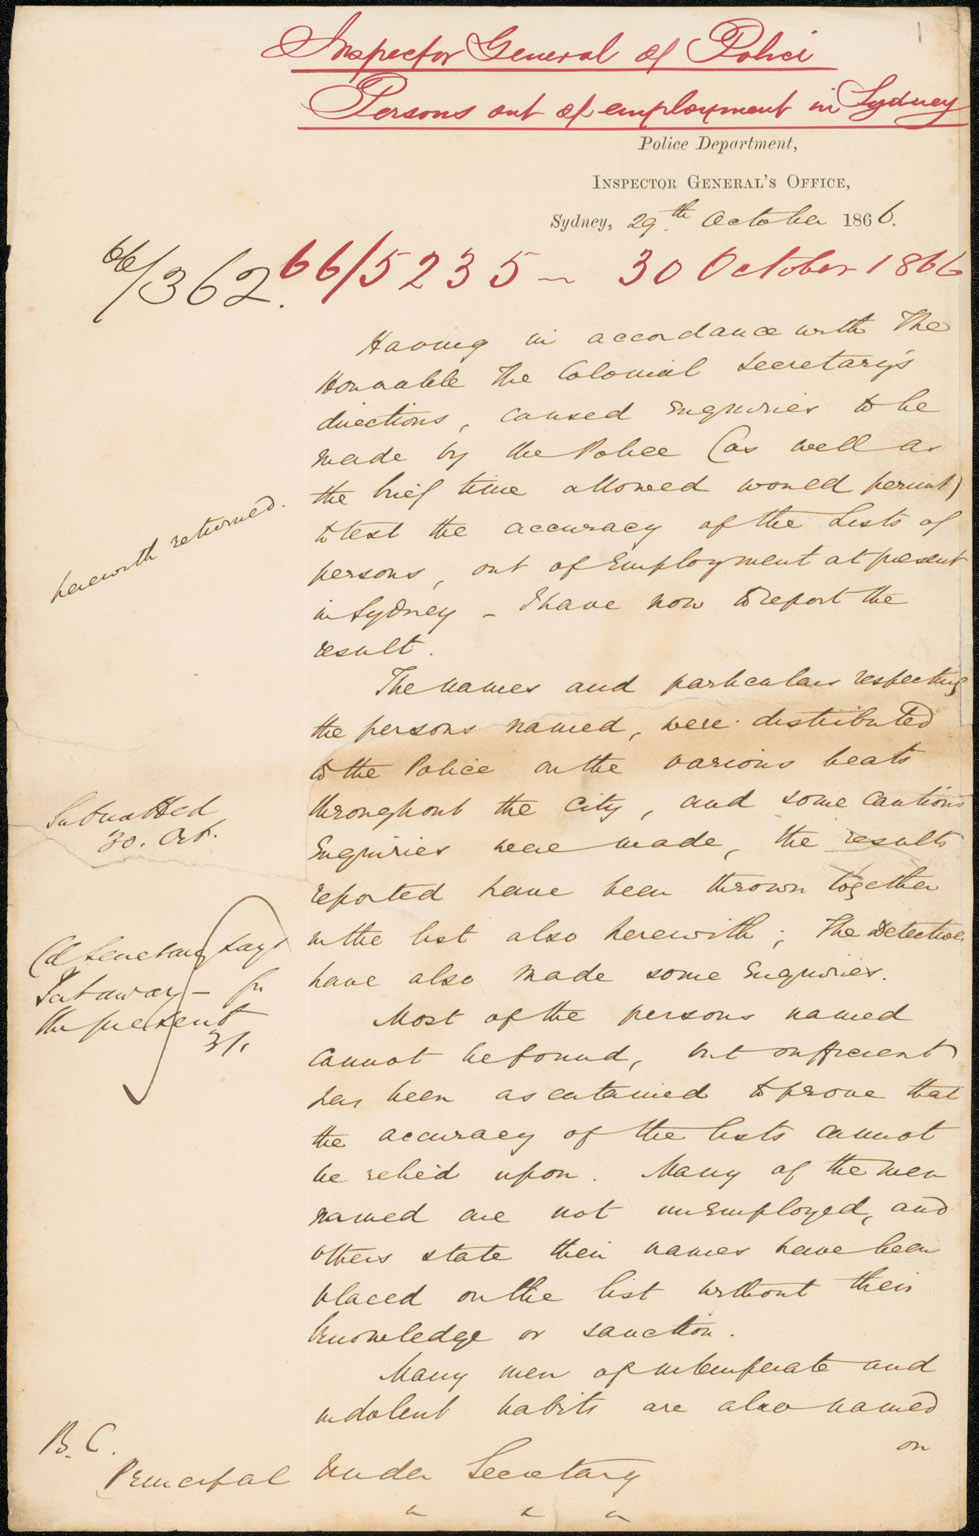 Inspector General of Police
Persons out of employment in Sydney
Police Department,
Inspector General's Office,
Sydney, 29th October 1866.
66/362. 66/5235 – 30 October 1866
Having in accordance with The
Honorable The Colonial Secretary's
directions, caused Enquiries to be
made by the Police (as well as
the brief time allowed would permit)
to test the accuracy of the Lists of
herewith returned.
persons, out of Employment at present
in Sydney – I have now to report the
result.
The names and particulars respecting
the persons named, were distributed
to the Police on the various beats
throughout the City, and some cautious
Submitted
30. Oct.
Enquiries were made, the results
reported have been thrown together
in the list also herewith; The Detectives
have also made some Enquiries.
Col Secretary says
Put away – for
the present
31.
Most of the persons named
cannot be found, but sufficient
has been ascertained to prove that
the accuracy of the lists cannot
be relied upon. Many of the men
named are not unemployed, and
others state their names have been
placed on the list without their
knowledge or sanction.
Many men of intemperate and
indolent habits are also named
on
B. C.
Principal Under Secretary